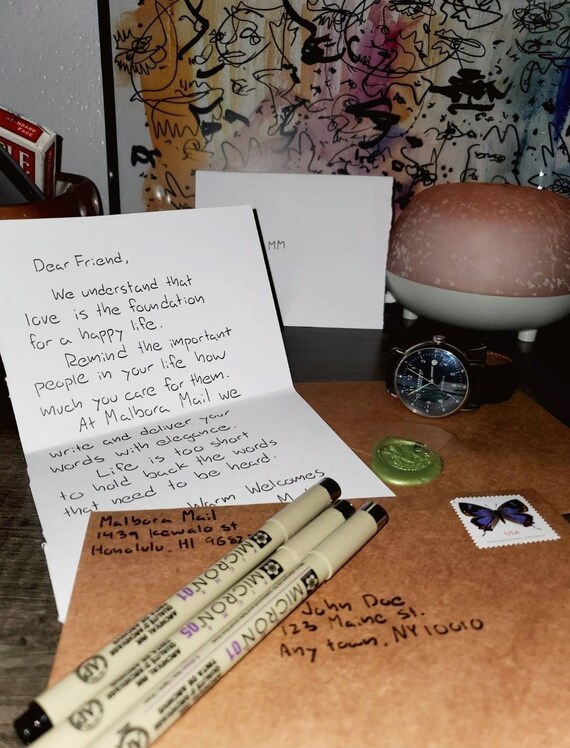 MM
Dear Friend,
We understand that
love is the foundation
for a happy life.
Remind the important
people in your life how
much you care for them.
At Malbora Mail we
write and deliver your
words with elegance.
Life is too short
to hold back the words
that need to be heard.
Warm Welcomes
Malbora Mail
1439 Kewalo st
Honolulu, HI
USA
John Doe
123 Maine St.
Any town, NY 10010
MICRON 01
ARCHIVAL INK
MICRON 05
ARCHIVAL INK
MICRON 01
ARCHIVAL INK